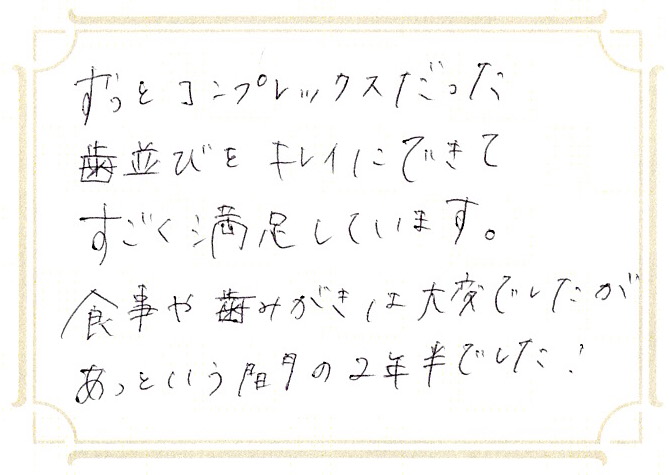 ずっとコンプレックスだった
歯並びをキレイにできて
すごく満足しています。
食事や歯みがきは大変でしたが
あっという間の2年半でした!